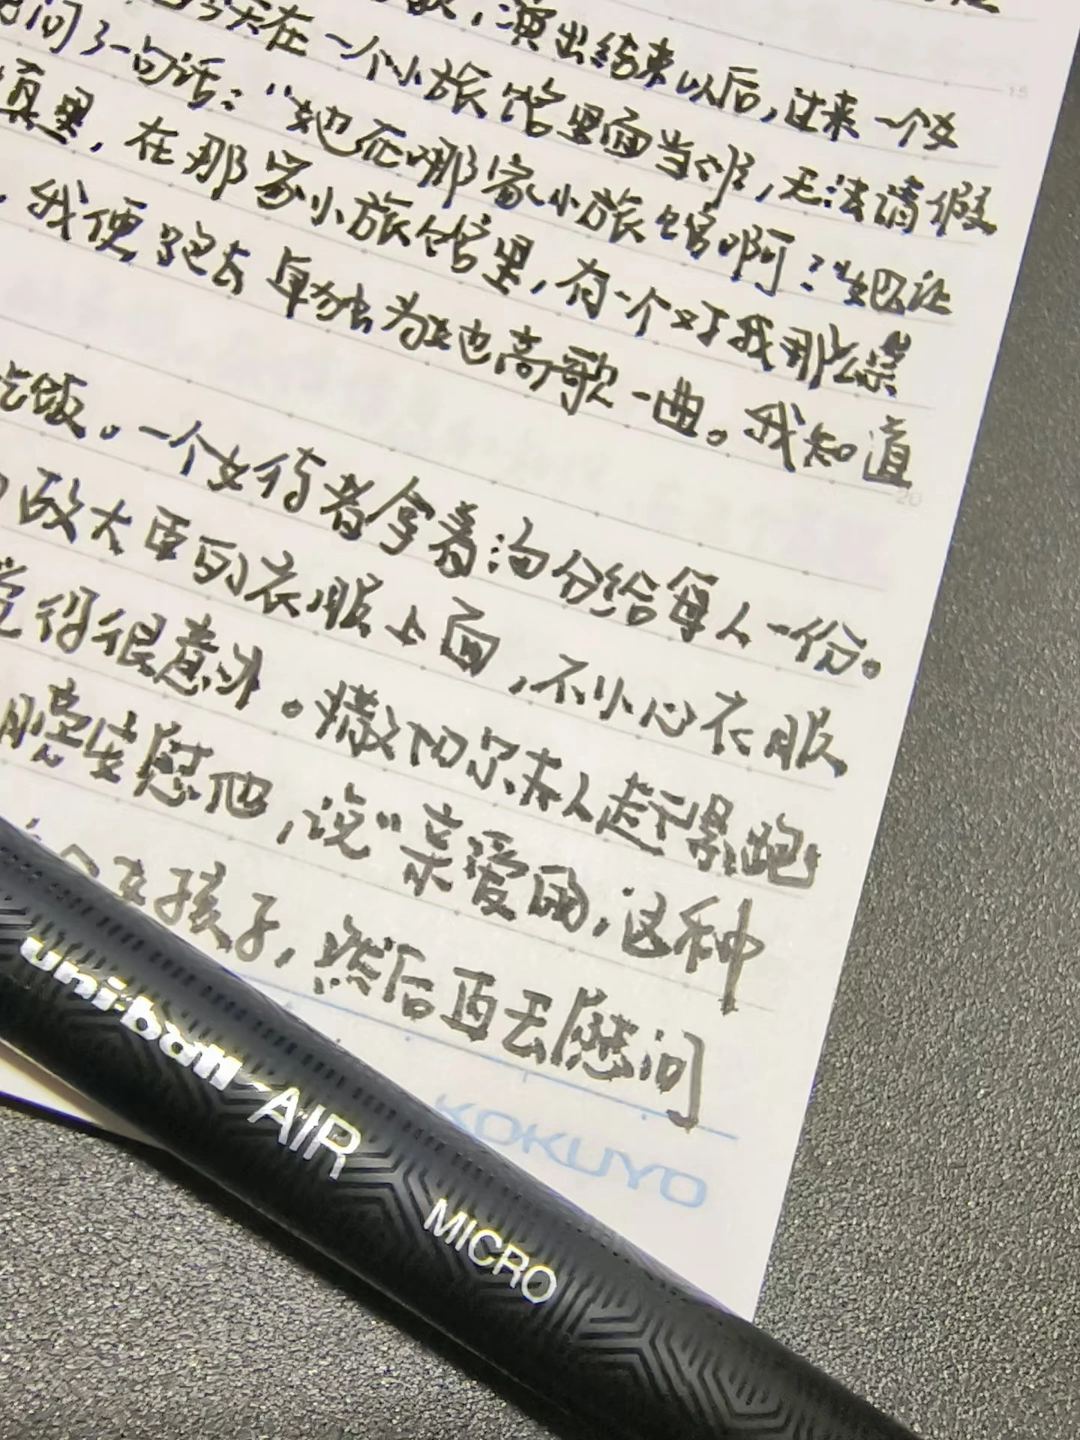 演出结束以后,过来一个女
今天在一个小旅馆里面当班,无法请假
问了一句话:“她在哪家小旅馆啊?”她让
真是,在那家小旅馆里,有一个对于我那么崇
我便跑去单独为她高歌一曲。我知道
吃饭。一个女侍者拿着汤分给每人一份。
政大臣的衣服上面,不小心衣服
觉得很意外。撒切尔夫人赶紧跑
膀安慰他,说“亲爱的,这种
女孩子,然后再去慰问
15
20
KOKUYO
uni-ball AIR
MICRO